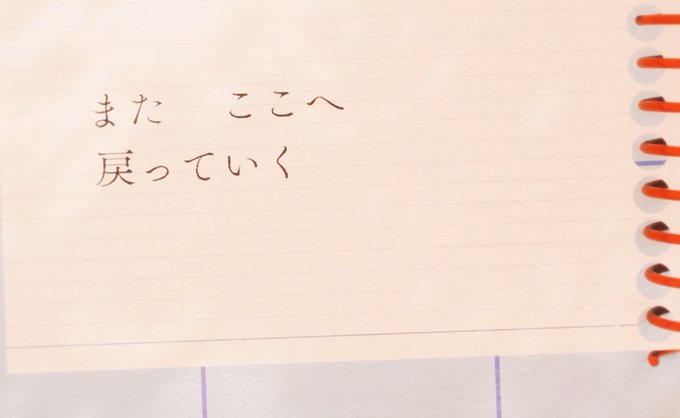 また　ここへ
戻っていく